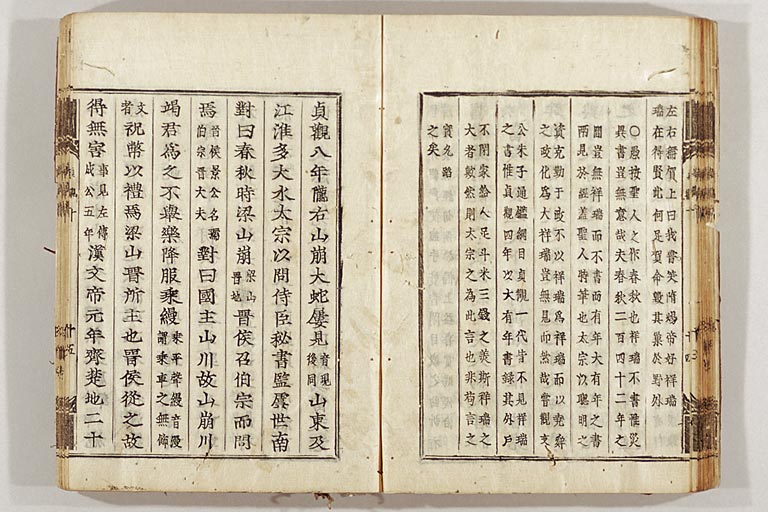 左右無賀上曰我嘗笑隋煬帝好祥瑞
瑞在得賢此何足賀命毀其巢於野外
○愚按聖人之作春秋也祥瑞不書惟災
異書豈無意哉夫春秋二百四十二年之
間豈無祥瑞而不書而有年大有年之書
而見於經蓋聖人特筆也太宗以聰明之
資克勤于政不以祥瑞為祥瑞而以堯舜
之政化為大祥瑞豈無見而然哉嘗觀文
公朱子通鑑綱目貞觀一代皆不見祥瑞
之書惟貞觀四年以大有年書錄其外戶
不閉家給人足斗米三錢之美斯祥瑞之
大者歟然則太宗之為此言也非苟言之
實允蹈
之矣
貞觀八年隴右山崩大蛇屢見音現後同山東及
江淮多大水太宗以問侍臣秘書監虞世南
對曰春秋時梁山崩梁山晉地晉侯召伯宗而問
焉晉侯景公名獳伯宗晉大夫對曰國主山川故山崩川
竭君為之不舉樂降服乘縵乘平聲縵音慢謂乘車之無飾
文者祝幣以禮焉梁山晉所主也晉侯從之故
得無害事見左傳成公五年漢文帝元年齊楚地二十